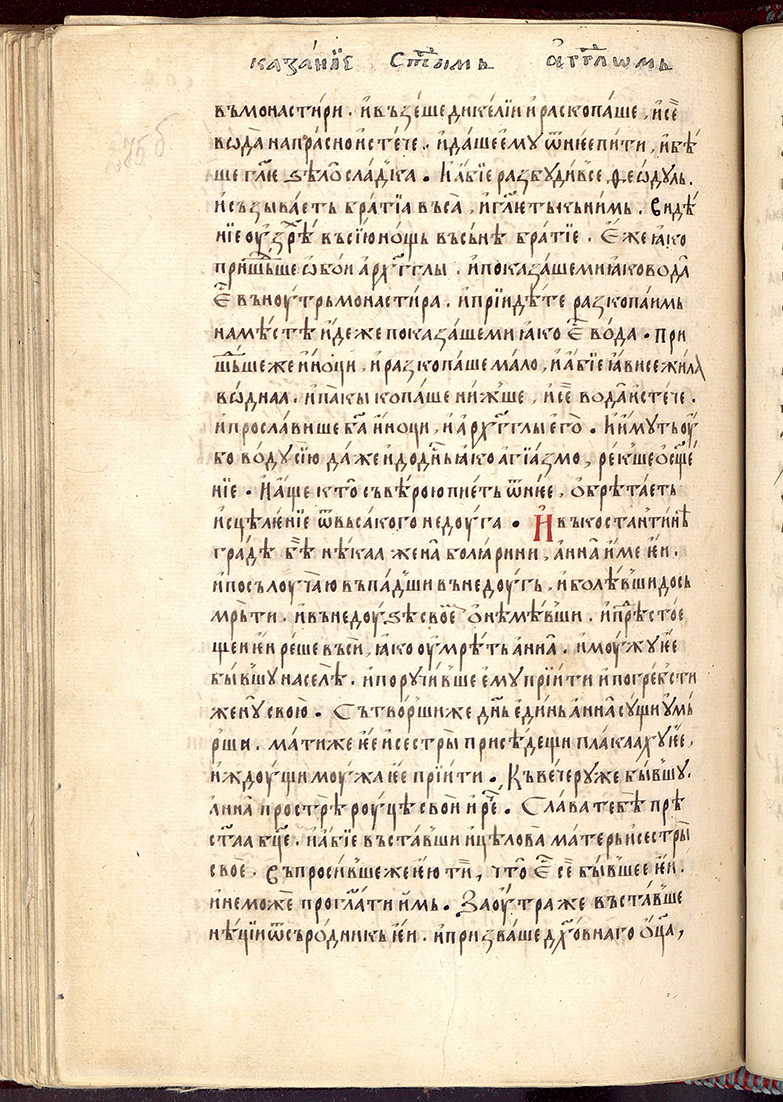 каза́нїе ст҃ы́мь а҆гг҃лѡмь
въмонастири . и҆възе́ше дике́лїи и҆раскопа́ше , и҆се҆
вѡда̀ напра́сно и҆сте́че . и҆да́ше е҆му ѿнѥе пи́ти , и҆бѣ́
ше гл҃ѥ ѕѣ́лѡ сла́дка . И҆а́бїе разбуди́все ѳеѡ́дуль .
и҆съзыва́еть бра́тїа въса̀ , и҆гл҃ѥть къни́мь . видѣ́
нїе оу҆зрѣ́ въсїю́ но́щь въсънѣ̀ бра́тїе . Е҆́же ꙗ҆́ко
приш́ьше ѡ҆бо́и а҆рхг҃глы . и҆показа́шеми ꙗ҆ко вода̀
е҆҃ вънꙋ́трь монасти́ра . и҆прїидѣ́те разкопа́имь
намѣ́стѣ и҆де́же показа́шеми ꙗ҆́ко е҆҃ во́да . При
ш́ьшеже и҆но́ци , и҆разкопа́ше ма́ло , и҆а́бїе ꙗ҆ви́се жи́ла
вѡ́днаа . и҆па́кы копа́ше ни́жше , и҆се҆ вода̀ и҆сте́че .
и҆просла́више ба҃ и҆но́ци , и҆а҆рхг҃глы е҆го̀ . И҆и҆́муть оу҆
бо во́ду сїю̀ да́же и҆додн҃ь ꙗ҆́ко а҆гїа́змо , ре́кше ѡ҆сщ҃е́
нїе . И҆а́ще кто̀ съвѣ́рою пїе́ть ѿнѥе , ѡ҆брѣта́еть
и҆сцѣле́нїе ѿвьса́кого недоу́га . И҆въкостанти́нѣ
гра́дѣ бѣ̀ нѣ́каа жена̀ болꙗ́рини , а҆́нна и҆́ме ѥ҆́и .
и҆послоу́чаю въпа́дши въне́доугь , и҆болѣ́вши досъ
мрь́ти . и҆вънедоу́ѕѣ свое҆ ѻ҆немѣ́вши . и҆прѣ́стое
щеи ѥ҆́и ре́ше въси̑ , ꙗ҆́ко оу҆мрѣ́ть а҆́нна . и҆моу́жу ѥ҆е
бы́вшу на селѣ̀ . и҆пору́чивше е҆му̀ прїи́ти и҆погре́бсти
жену̀ свою̀ . Сътво́ршиже дн҃ь е҆ди́нь а҆́нна су́щи у҆мь́
рша . ма́тиже ѥ҆е и҆сестры̀ присѣде́щи пла́каахуѥ҆е ,
и҆ждоу́щи моу́жа ѥ҆е прїи́ти . Къве́черу же бы́вшу .
а҆́нна прострѣ̀ роу́цѣ свои̑ и҆ре҃ . Сла́ва тебѣ̀ прѣ
ст҃аа бц҃е . и҆а́бїе въста́вши и҆цѣлова̀ ма́терь и҆сестры̀
свое̑ . Съпроси́вшеже ѥ҆ю тїи̑ , что̀ е҆҃ се҆ бы́вшее ѥ҆и .
и҆не мо́же прогла҃ти и҆̀мь . Заоу́тра же въста́вше
нѣ́цїи ѿсъро́дникь ѥ҆и . и҆призва́ше дх҃о́внаго ѻ҆ц҃а ,